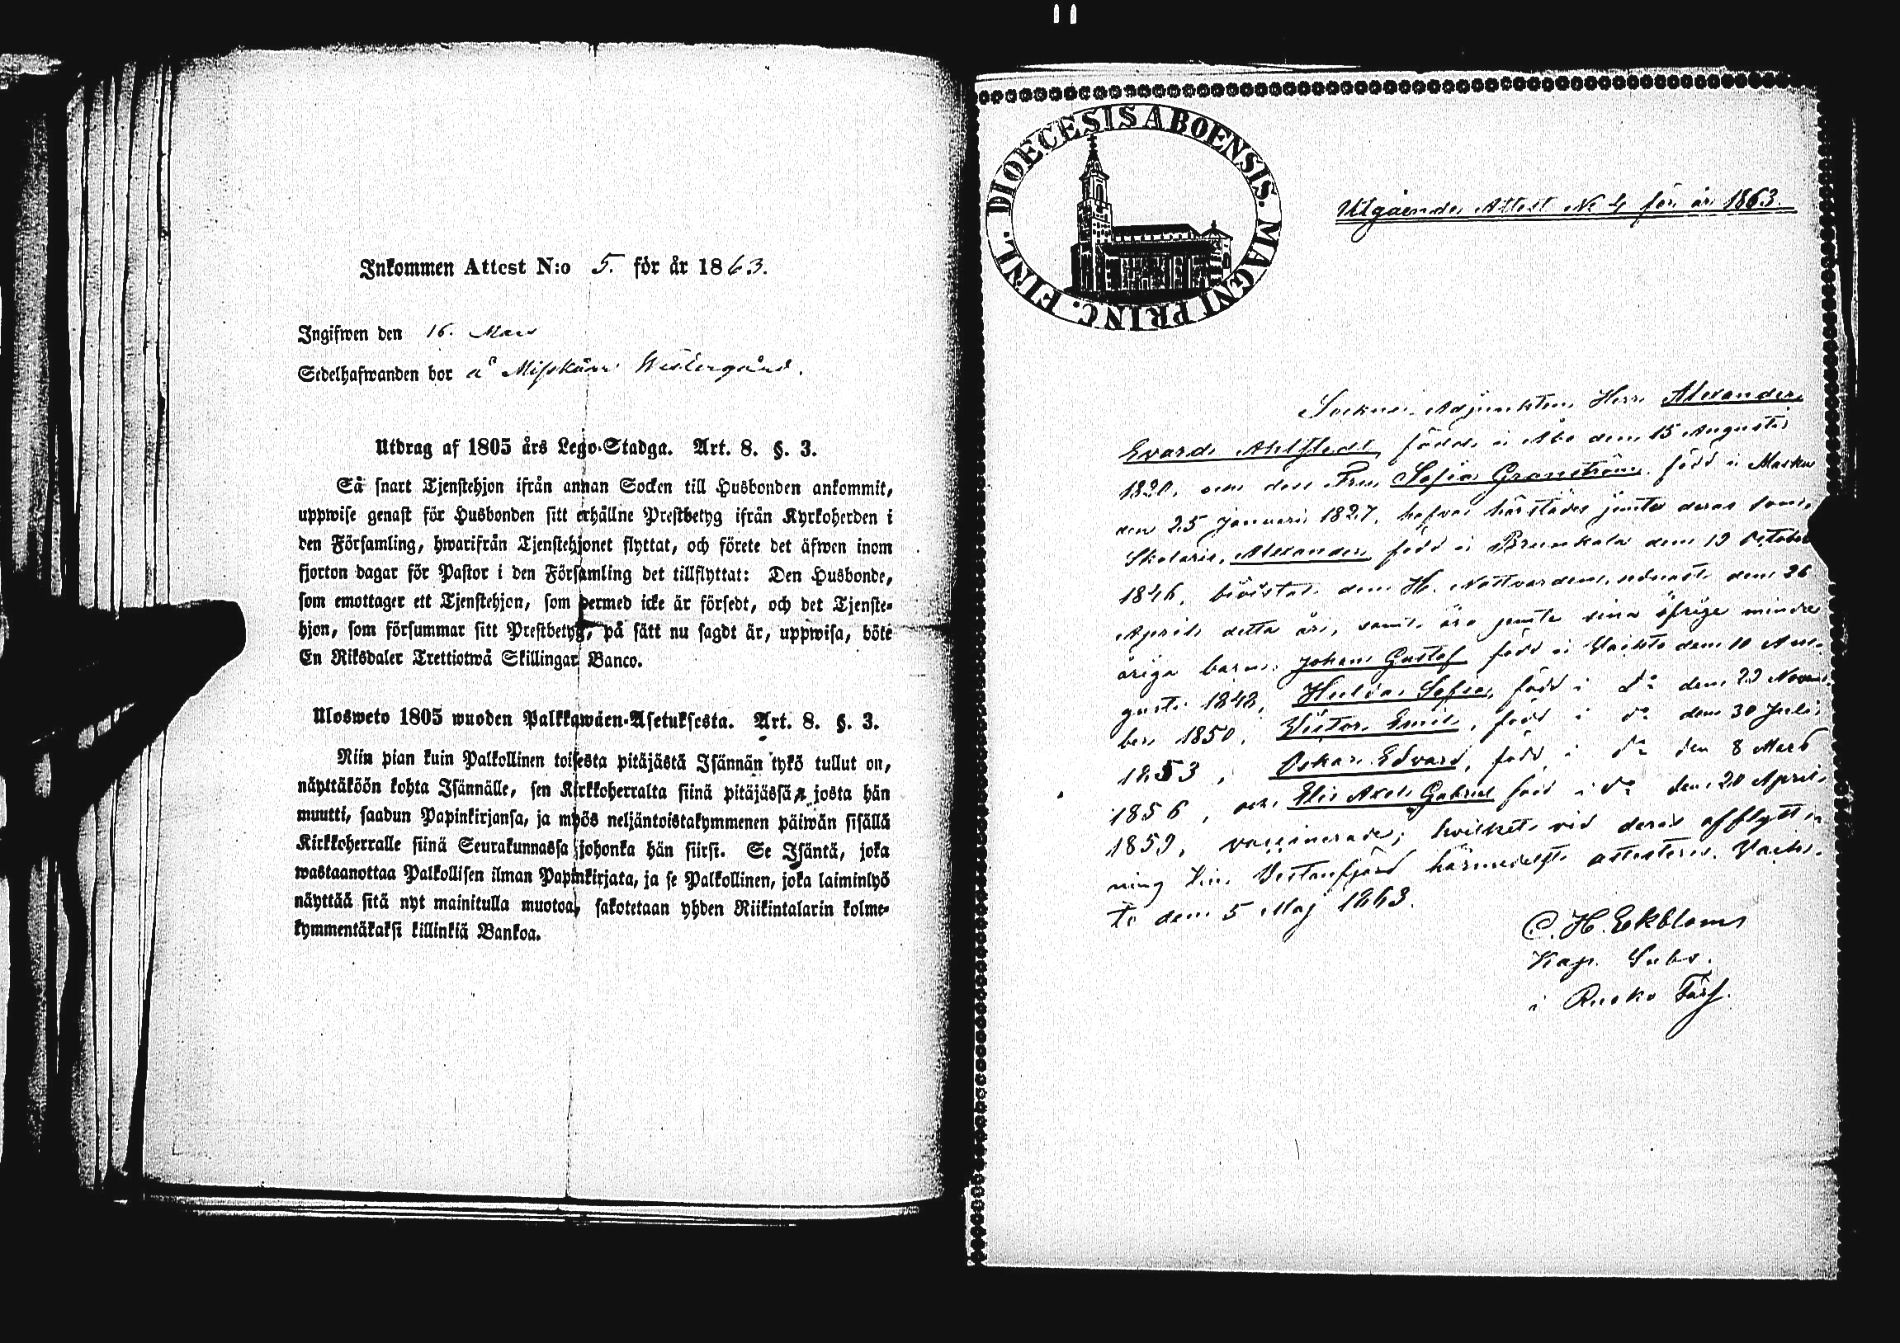 Inkommen Attest N:o 5. för år 1863.
Ingifwen den 16. Mars
Sedelhafwanden bor å Misskärr Westergård.
Utdrag af 1805 års Lego-Stadga. Art. 8. §. 3.
Så snart Tjenstehjon ifrån annan Socken till Husbonden ankommit,
uppwise genast för Husbonden sitt erhållne Prestbetyg ifrån Kyrkoherden i
den Församling, hwarifrån Tjenstehjonet flyttat, och förete det äfwen inom
fjorton dagar för Pastor i den Församling det tillflyttat: Den Husbonde,
som emottager ett Tjenstehjon, som dermed icke är försedt, och det Tjenste-
hjon, som försummar sitt Prestbetyg, på sätt nu sagdt är, uppwisa, böte
En Riksdaler Trettiotwå Skillingar Banco.
Ulosweto 1805 wuoden Palkkawäen-Asetuksesta. Art. 8. §. 3.
Niin pian kuin Palkollinen toisesta pitäjästä Isännän tykö tullut on,
näyttäköön kohta Isännälle, sen Kirkkoherralta siinä pitäjässä, josta hän
muutti, saadun Papinkirjansa, ja myös neljäntoistakymmenen päiwän sisällä
Kirkkoherralle siinä Seurakunnassa johonka hän siirsi. Se Isäntä, joka
wastaanottaa Palkollisen ilman Papinkirjata, ja se Palkollinen, joka laiminlyö
näyttää sitä nyt mainitulla muotoa, sakotetaan yhden Riikintalarin kolme-
kymmentäkaksi killinkiä Bankoa.
DIOECESIS ABOENSIS. MAGNI PRINC. FINL.
Utgående Attest No 4 för år 1863.
Sockne-Adjunkten Herr Alexander
Evard Ahlstedt, född i Åbo den 15 Augusti
1820, och dess Fru Sofia Granström, född i Masku
den 25 Januarii 1827, hafva härstädes jemte deras son,
Skolaris, Alexander, född i Brunkala den 19 October
1846, bivistat den H. Nattvarden, sednast den 26
April detta år, samt äro jemte sina öfrige minder
åriga barn: Johan Gustaf född i Vachto den 10 Au-
gusti 1848, Hulda Sofia, född i do den 29 Novem
ber 1850, Victor Emil, född i do den 30 Juli
1853, Oskar Edvard, född i do den 8 Mars
1856, och Elis Axel Gabriel född i do den 20 April
1859, vaccinerade; hvilket vid deras afflytt
ning till Vestanfjärd härmedelst attesteras. Vach-
to den 5 Maj 1863.
C. H. Ekblom
Kap. Subs.
i Rusko Förs.